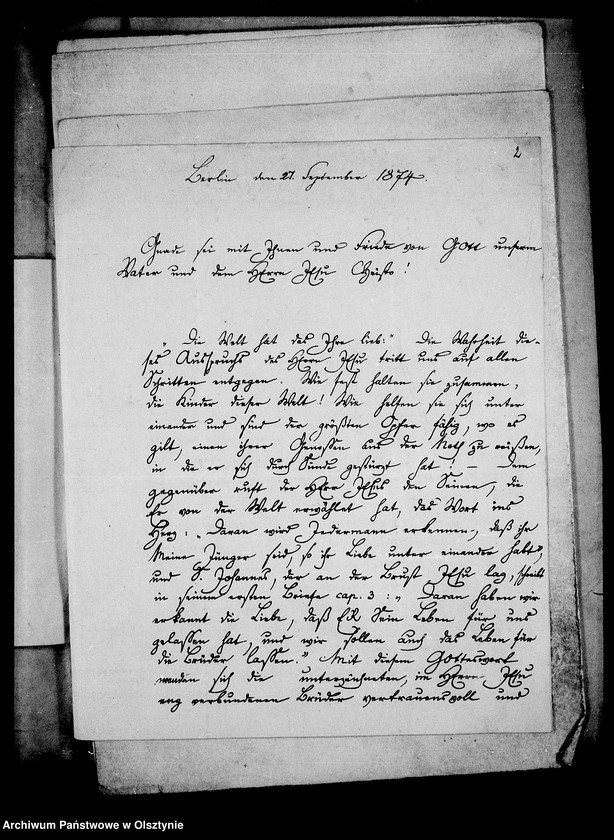 2
Berlin den 27. September 1874.
Gnade sei mit Ihnen und Friede von Gott unserm
Vater und dem HErrn JEsu Christo!
„Die Welt hat das Ihre lieb:" Die Wahrheit die-
ses Ausspruchs des HErrn JEsu tritt uns auf allen
Schritten entgegen. Wie fest halten sie zusammen,
die Kinder dieser Welt! Wie helfen sie sich unter
einander und sind der größten Opfer fähig, wo es
gilt, einen ihrer Genossen aus der Noth zu reißen,
in die er sich durch Sünde gestürzt hat! – Dem
gegenüber ruft der HErr JEsus den Seinen, die
Er von der Welt erwählet hat, das Wort ins
Herz: „Daran wird Jedermann erkennen, daß ihr
Meine Jünger seid, so ihr Liebe unter einander habt",
und S. Johannes, der an der Brust JEsu lag, schreibt
in seinem ersten Briefe cap. 3: „Daran haben wir
erkannt die Liebe, daß ER Sein Leben für uns
gelassen hat, und wir sollen auch das Leben für
die Brüder lassen." Mit diesem Gotteswort
wenden sich die unterzeichneten, im HErrn JEsu
eng verbundenen Brüder vertrauensvoll und
Archiwum Państwowe w Olsztynie